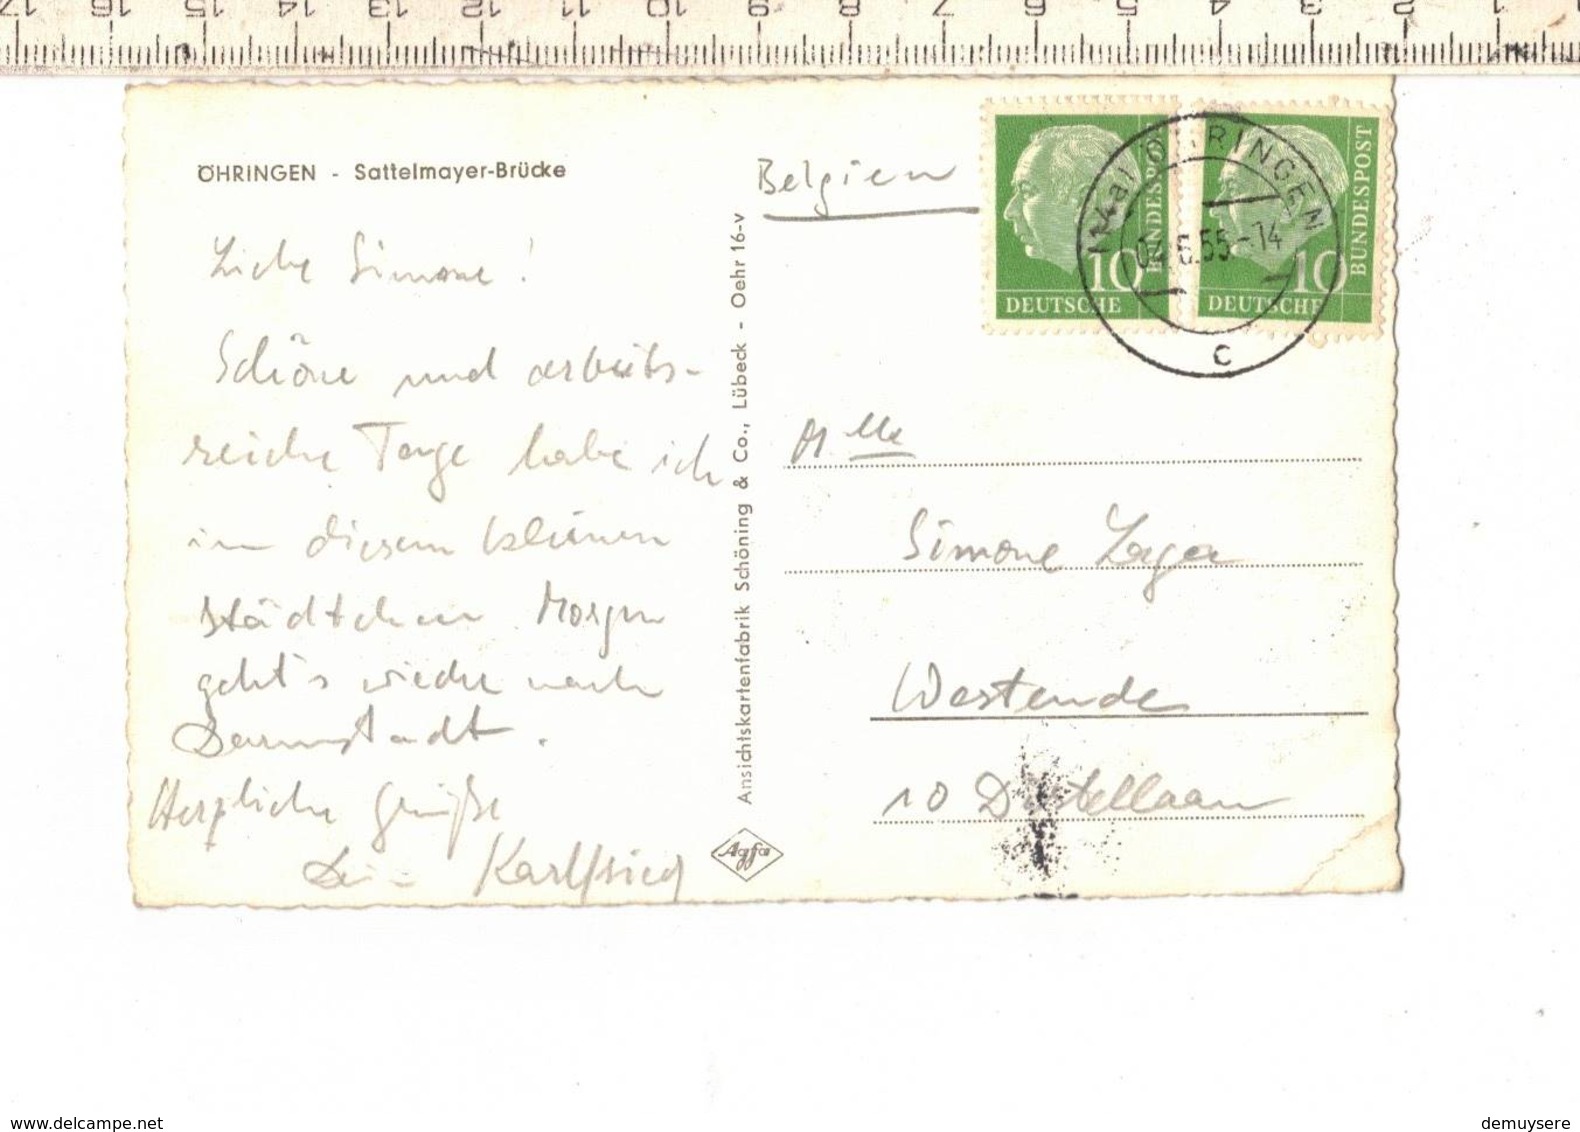 17 16 15 14 13 12 11 10 9 8 7 6 5 4 3 2 1
ÖHRINGEN - Sattelmayer-Brücke
Liebe Simone!
Schöne und arbeits-
reiche Tage habe ich
in diesem kleinen
Städtchen Morgen
geht's wieder nach
Darmstadt.
Herzliche Grüße
Dein Karlfried
Ansichtskartenfabrik Schöning & Co., Lübeck - Oehr 16-v
Agfa
Belgien
10
DEUTSCHE
BUNDESPOST
10
DEUTSCHE
BUNDESPOST
ÖHRINGEN
55-14
c
Mlle
Simone
Westende
10 Distellaan
www.delcampe.net
demuysere